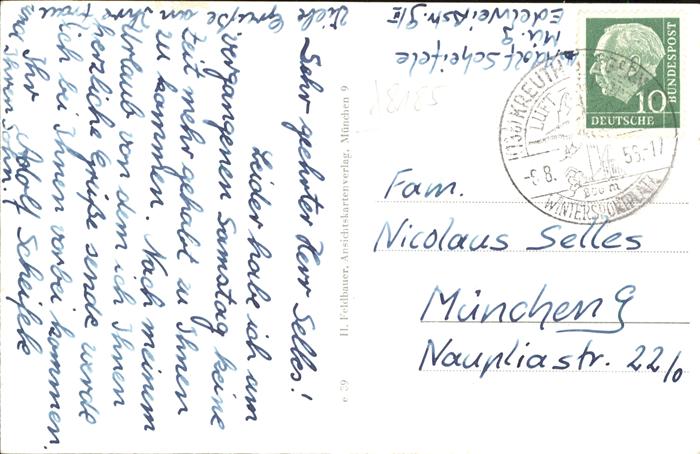 Sehr geehrter Herr Selles!
Leider habe ich am
vergangenen Samstag keine
Zeit mehr gehabt zu Ihnen
zu kommen. Nach meinem
Urlaub von dem ich Ihnen
herzliche Grüße sende werde
ich bei Ihnen vorbei kommen.
Ihr Adolf Scheifele
Viele Grüße an Ihre Frau
und Ihren Sohn.
Adolf Scheifele
Mü. 9
Edelweißstr. 9/II
e 39 H. Feldbauer, Ansichtskartenverlag, München 9
DEUTSCHE
BUNDESPOST
10
(13b) KREUTH
LUFT
-8.8. 56.-17
800 m
WINTERSPORTPLATZ
Fam.
Nicolaus Selles
München 9
Naupliastr. 22/0